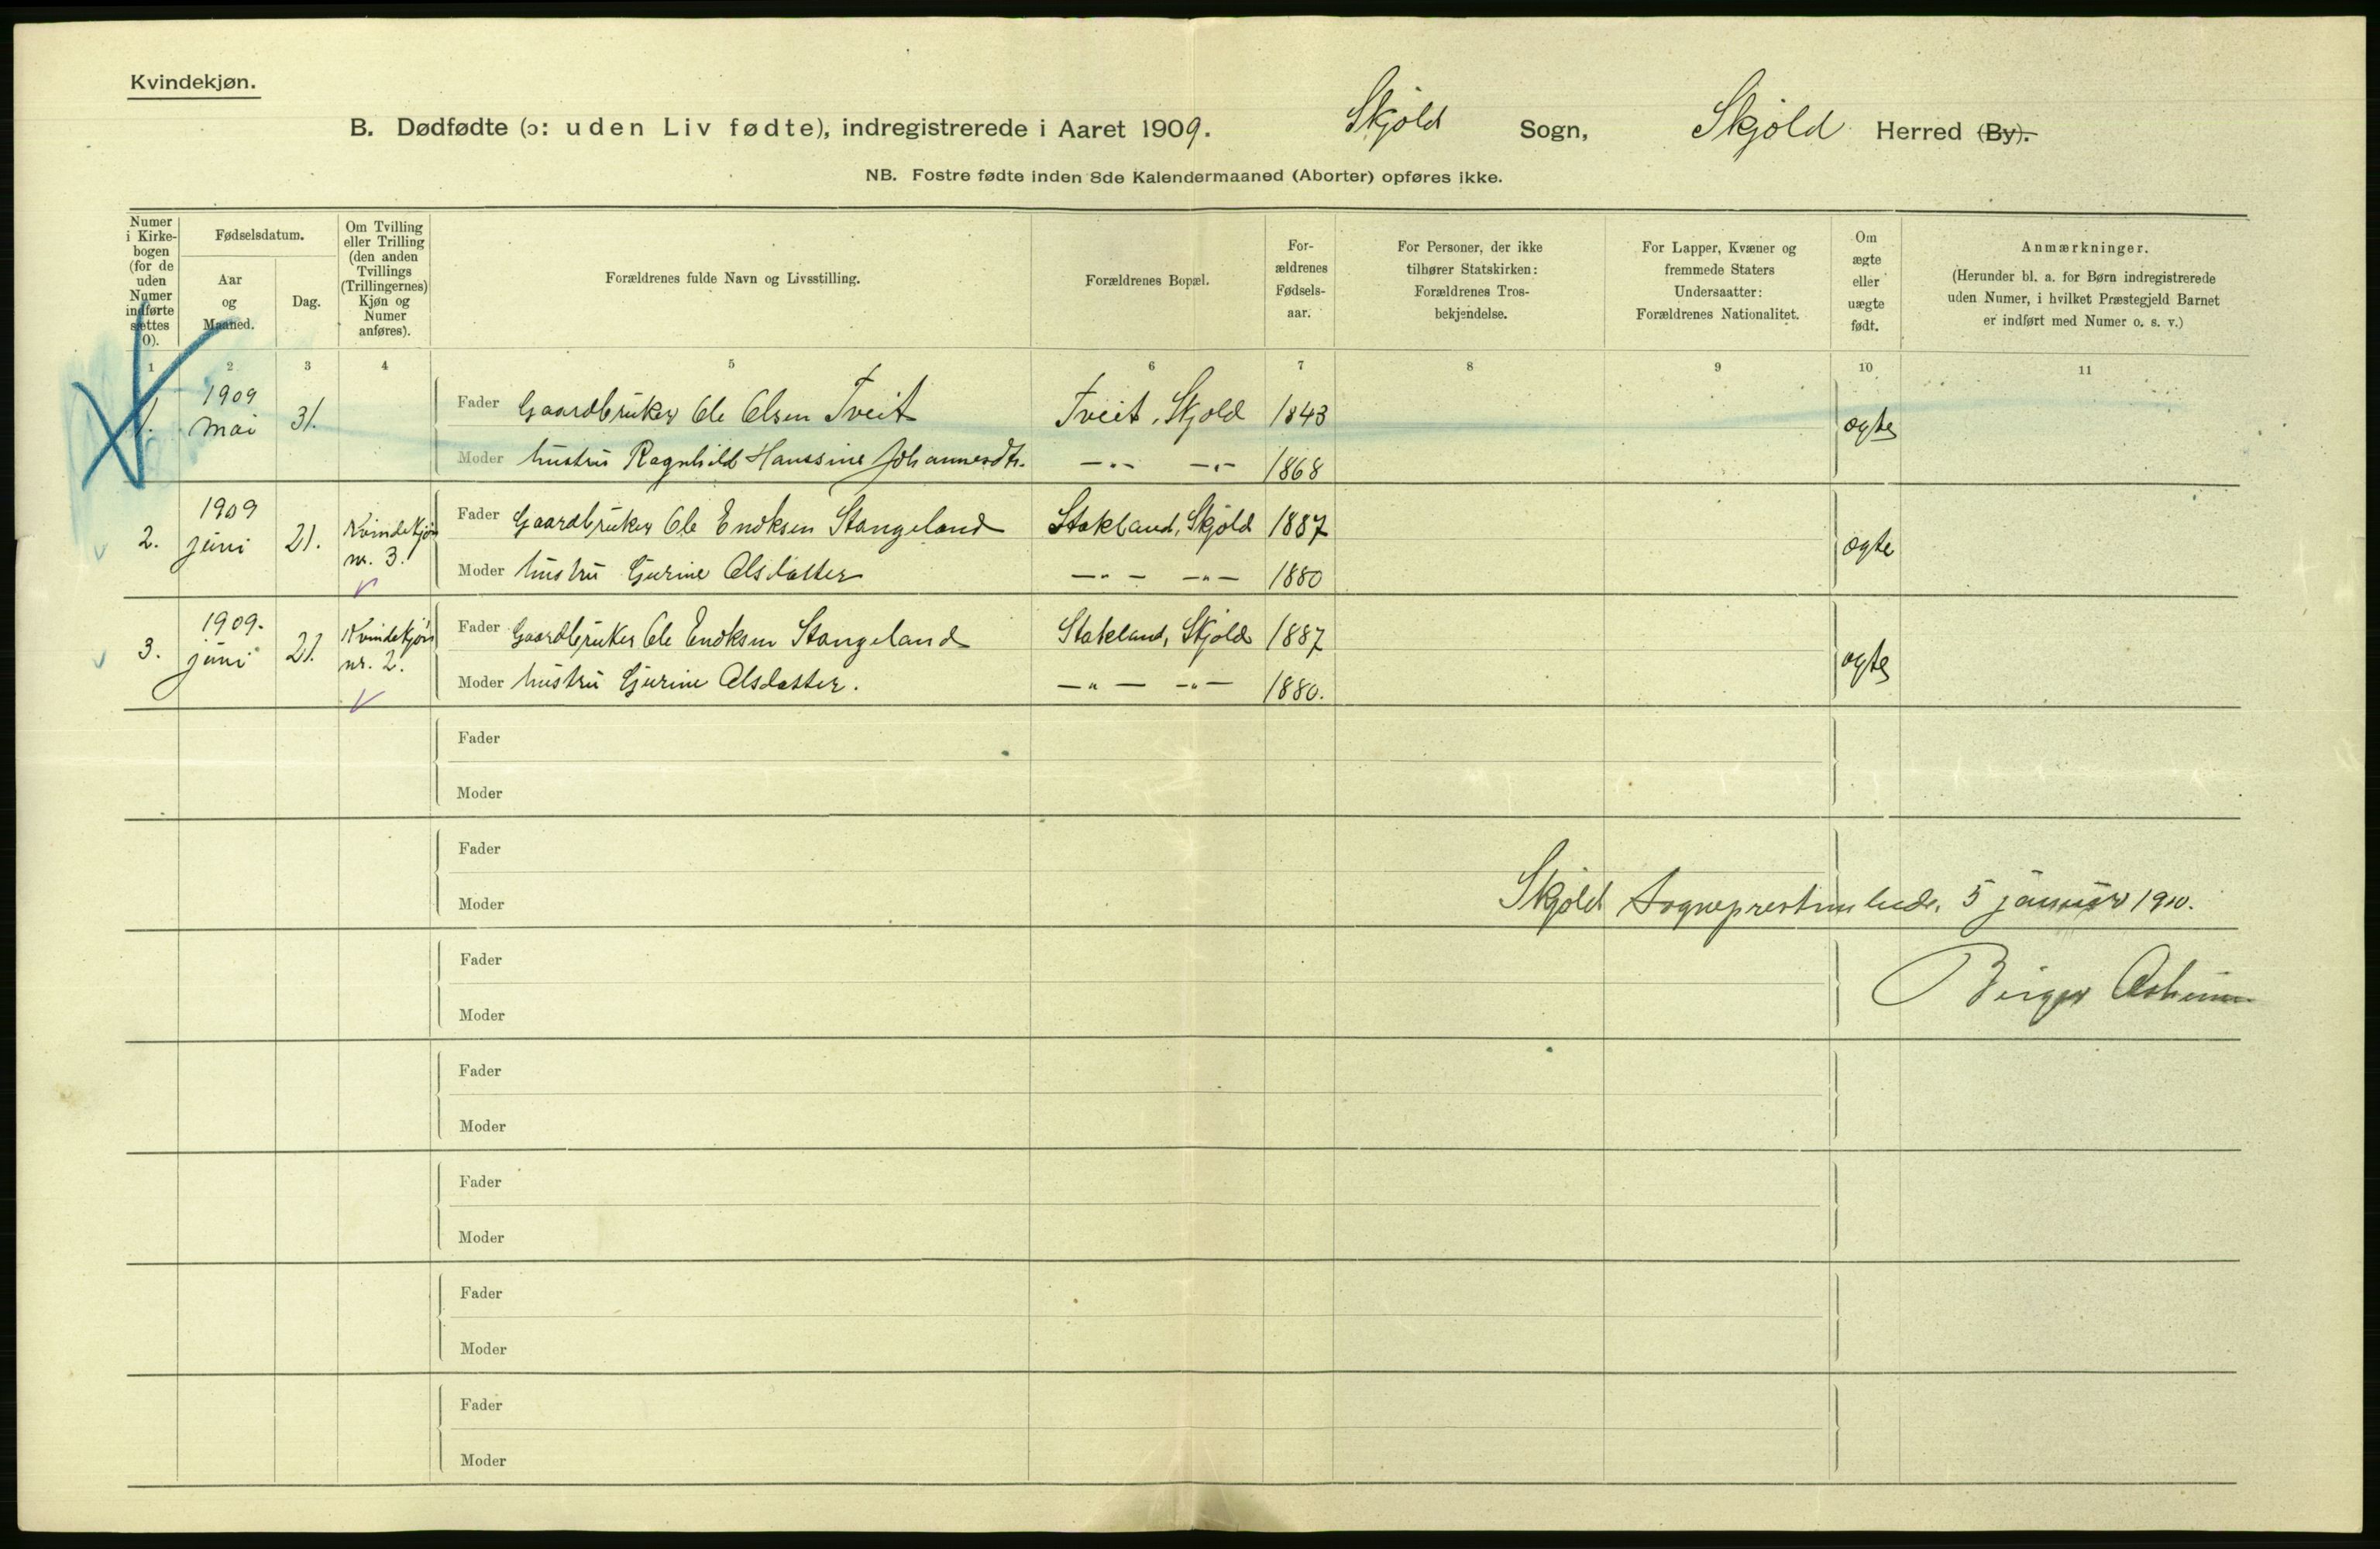 Kvindekjøn.
B. Dødfødte (ɔ: uden Liv fødte), indregistrerede i Aaret 1909. Skjold Sogn, Skjold Herred (By).
NB. Fostre fødte inden 8de Kalendermaaned (Aborter) opføres ikke.
Numer
i Kirke-
bogen
(for de
uden
Numer
indførte
sættes
0).
Fødselsdatum.
Aar
og
Maaned.
Dag.
Om Tvilling
eller Trilling
(den anden
Tvillings
(Trillingernes)
Kjøn og
Numer
anføres).
Forældrenes fulde Navn og Livsstilling.
Forældrenes Bopæl.
For-
ældrenes
Fødsels-
aar.
For Personer, der ikke
tilhører Statskirken:
Forældrenes Tros-
bekjendelse.
For Lapper, Kvæner og
fremmede Staters
Undersaatter:
Forældrenes Nationalitet.
Om
ægte
eller
uægte
født.
Anmærkninger.
(Herunder bl. a. for Børn indregistrerede
uden Numer, i hvilket Præstegjeld Barnet
er indført med Numer o. s. v.)
1 2 3 4 5 6 7 8 9 10 11
1. 1909 mai 31.
Fader Gaardbruker Ole Olsen Tveit Tveit, Skjold 1843 ægte
Moder hustru Ragnhild Hanssine Johannesdtr. —„— —„— 1868
2. 1909 juni 21. Kvindekjøn nr. 3.
Fader Gaardbruker Ole Enoksen Stangeland Stakland, Skjold 1887 ægte
Moder hustru Gurine Olsdatter —„— —„— 1880
3. 1909. juni 21. Kvindekjøn nr. 2.
Fader Gaardbruker Ole Enoksen Stangeland Stakland, Skjold 1887 ægte
Moder hustru Gurine Olsdatter. —„— —„— 1880.
Fader
Moder
Fader
Moder
Skjold 5 januar 1910.
Fader
Birger
Moder
Fader
Moder
Fader
Moder
Fader
Moder
Fader
Moder